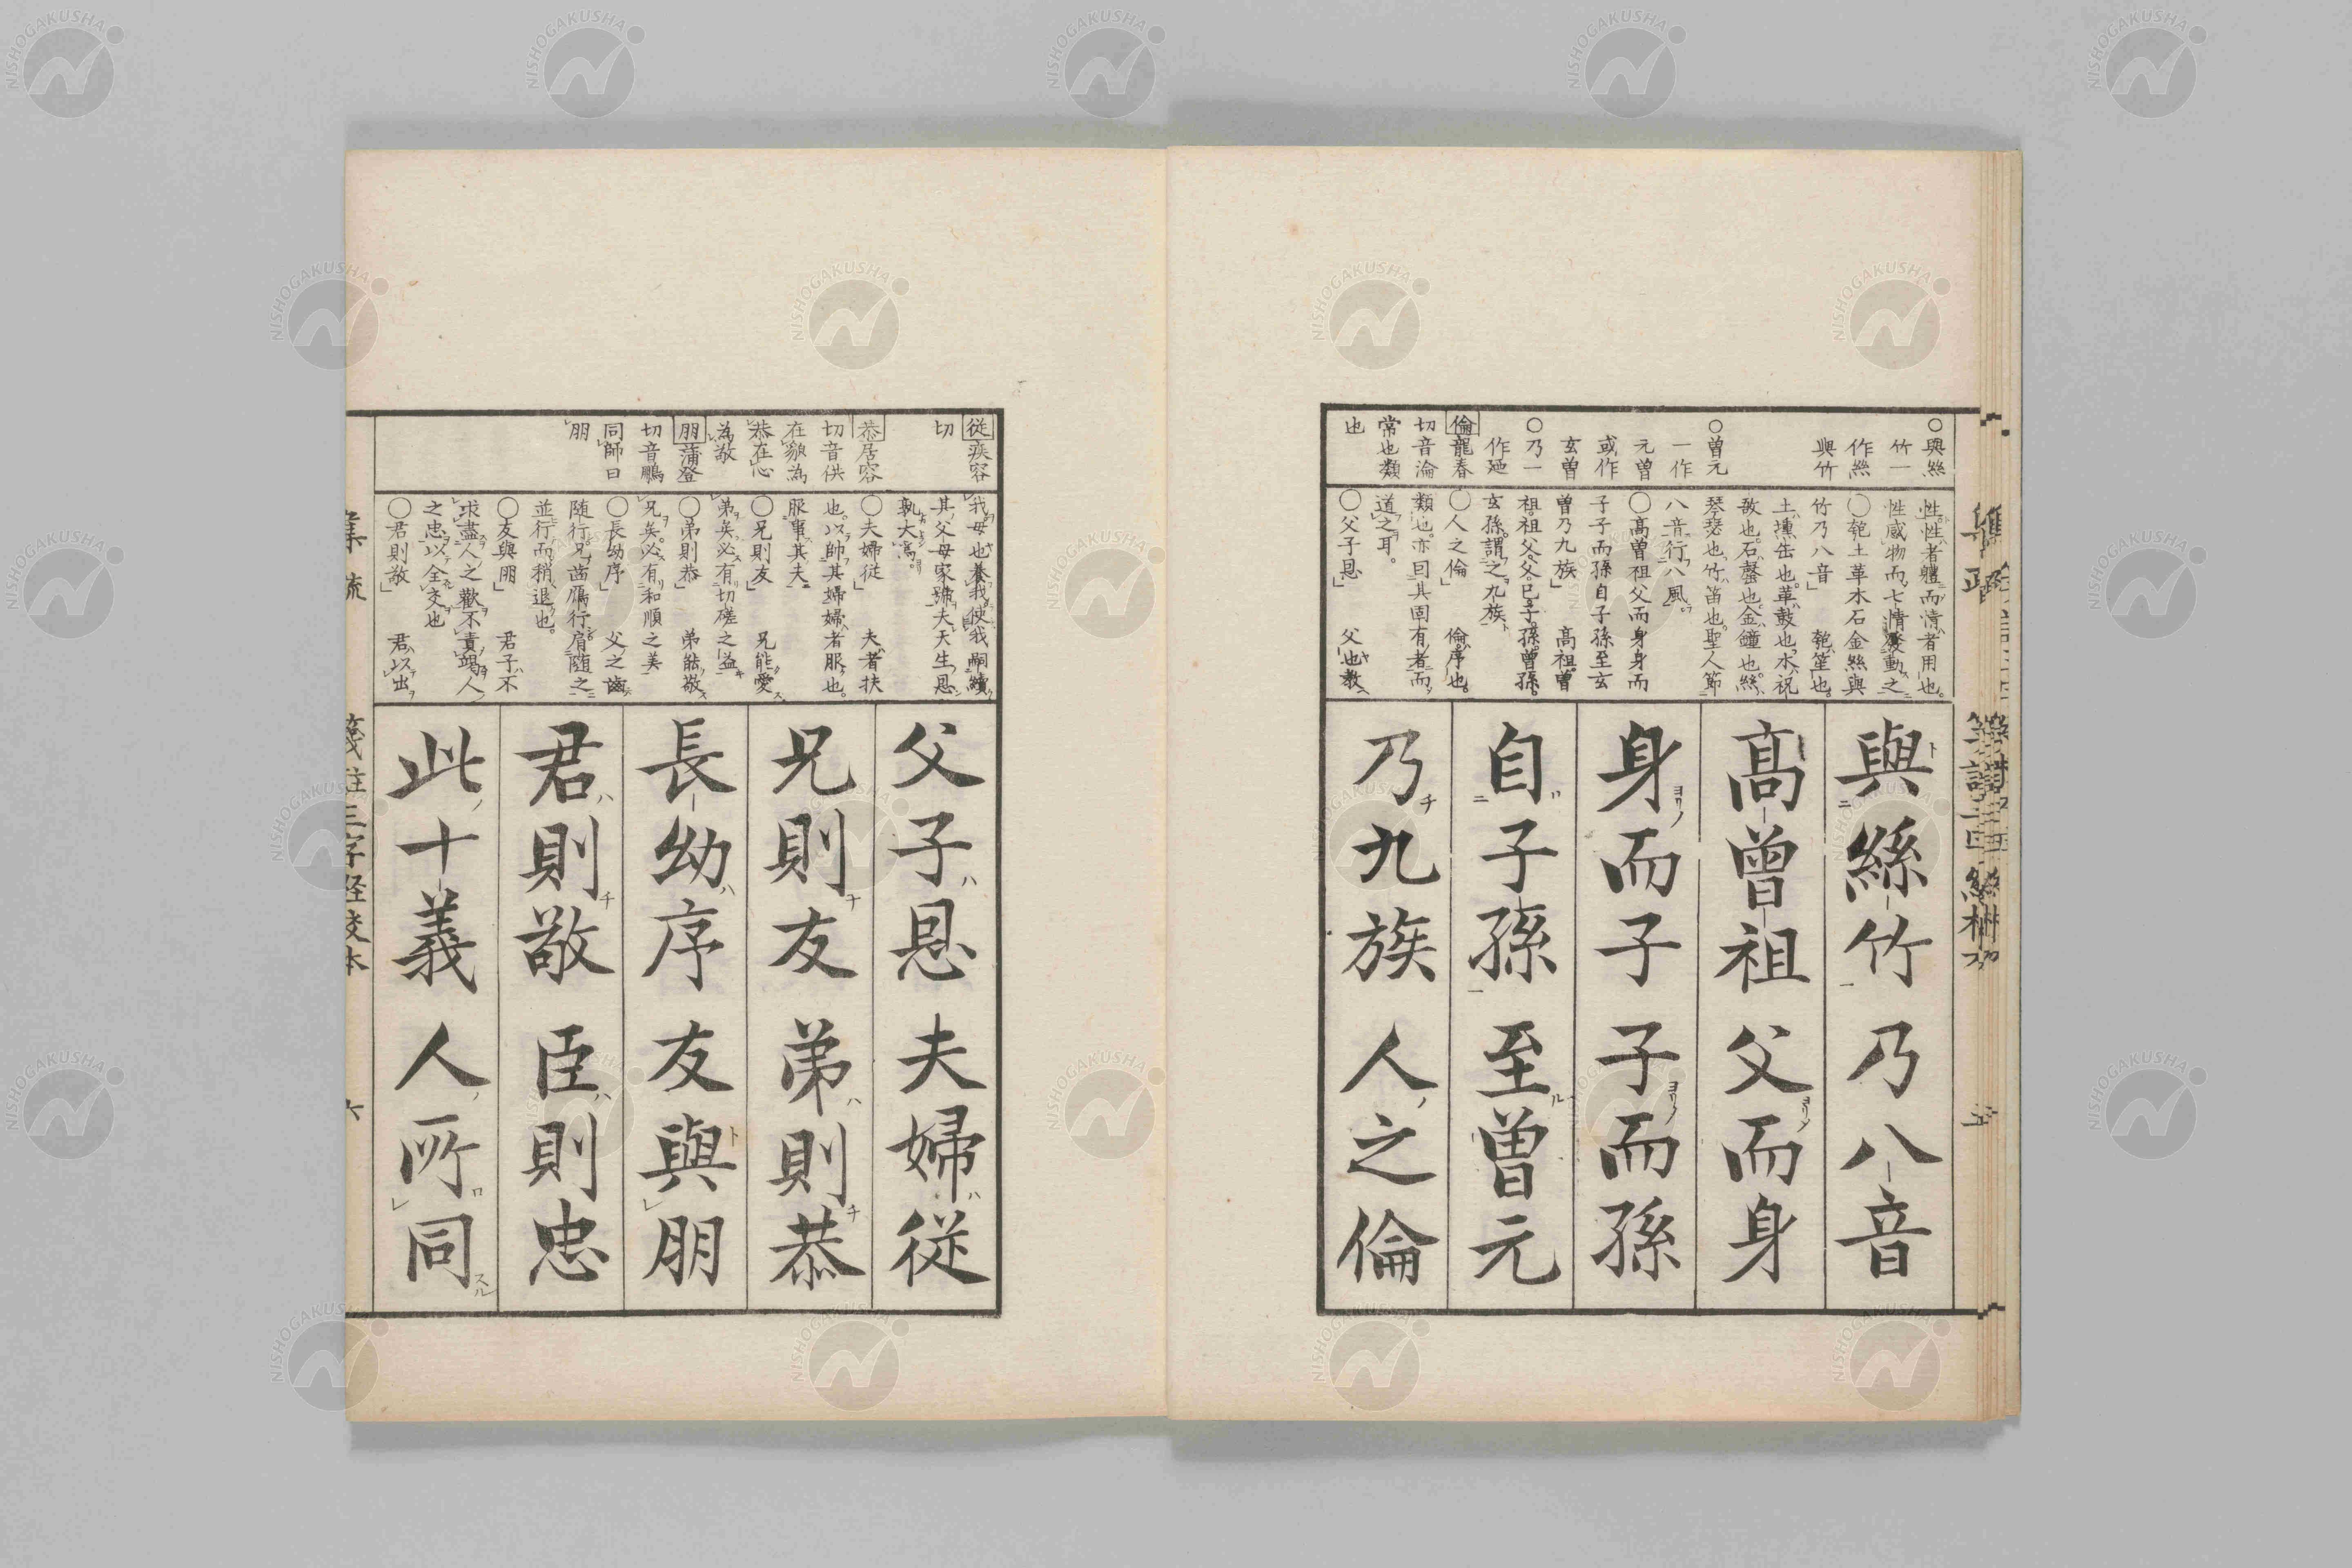 ○與絲
竹一
作絲
與竹
○曽元
一作
元曽
或作
玄曽
○乃一
作廼
倫龍春
切音淪
常也類
也
性性者軆而情者用也。
性感物而七情發動之
○匏土革木石金絲與
竹乃八音 匏笙也。
土壎缶也。革鼓也。木、柷
敔也。石磬也。金鐘也。絲
琴瑟也。竹笛也。聖人節
八音行八風
○高曽祖父而身身而
子子而孫自子孫至玄
曽乃九族 高祖曽
祖祖父父己子孫曽孫。
玄孫謂之九族
○人之倫 倫序也。
類也。亦曰其固有者而
道之耳。
○父子恩 父也教
與絲竹 乃八音
高曾祖 父而身
身而子 子而孫
自子孫 至曽元
乃九族 人之倫
從疾容
切
恭居容
切音供
在貌為
恭在心
為敬
朋蒲登
切音鵬
同師曰
朋
我母也養我使我嗣續
其父母家號夫天生恩
孰大焉。
○夫婦従 夫者扶
也。以帥其婦婦者服也。
服事其夫
○兄則友 兄能愛
弟矣必有切磋之益
○弟則恭 弟能敬
兄矣必有和順之美
○長幼序 父之齒
随行兄齒鴈行肩随之
並行而稍退也。
○友與朋 君子不
求盡人之歡不責竭人
之忠以全交也
○君則敬 君以出
父子恩 夫婦従
兄則友 弟則恭
長幼序 友與朋
君則敬 臣則忠
此十義 人所同
箋註三字經校本
六
NISHOGAKUSHA